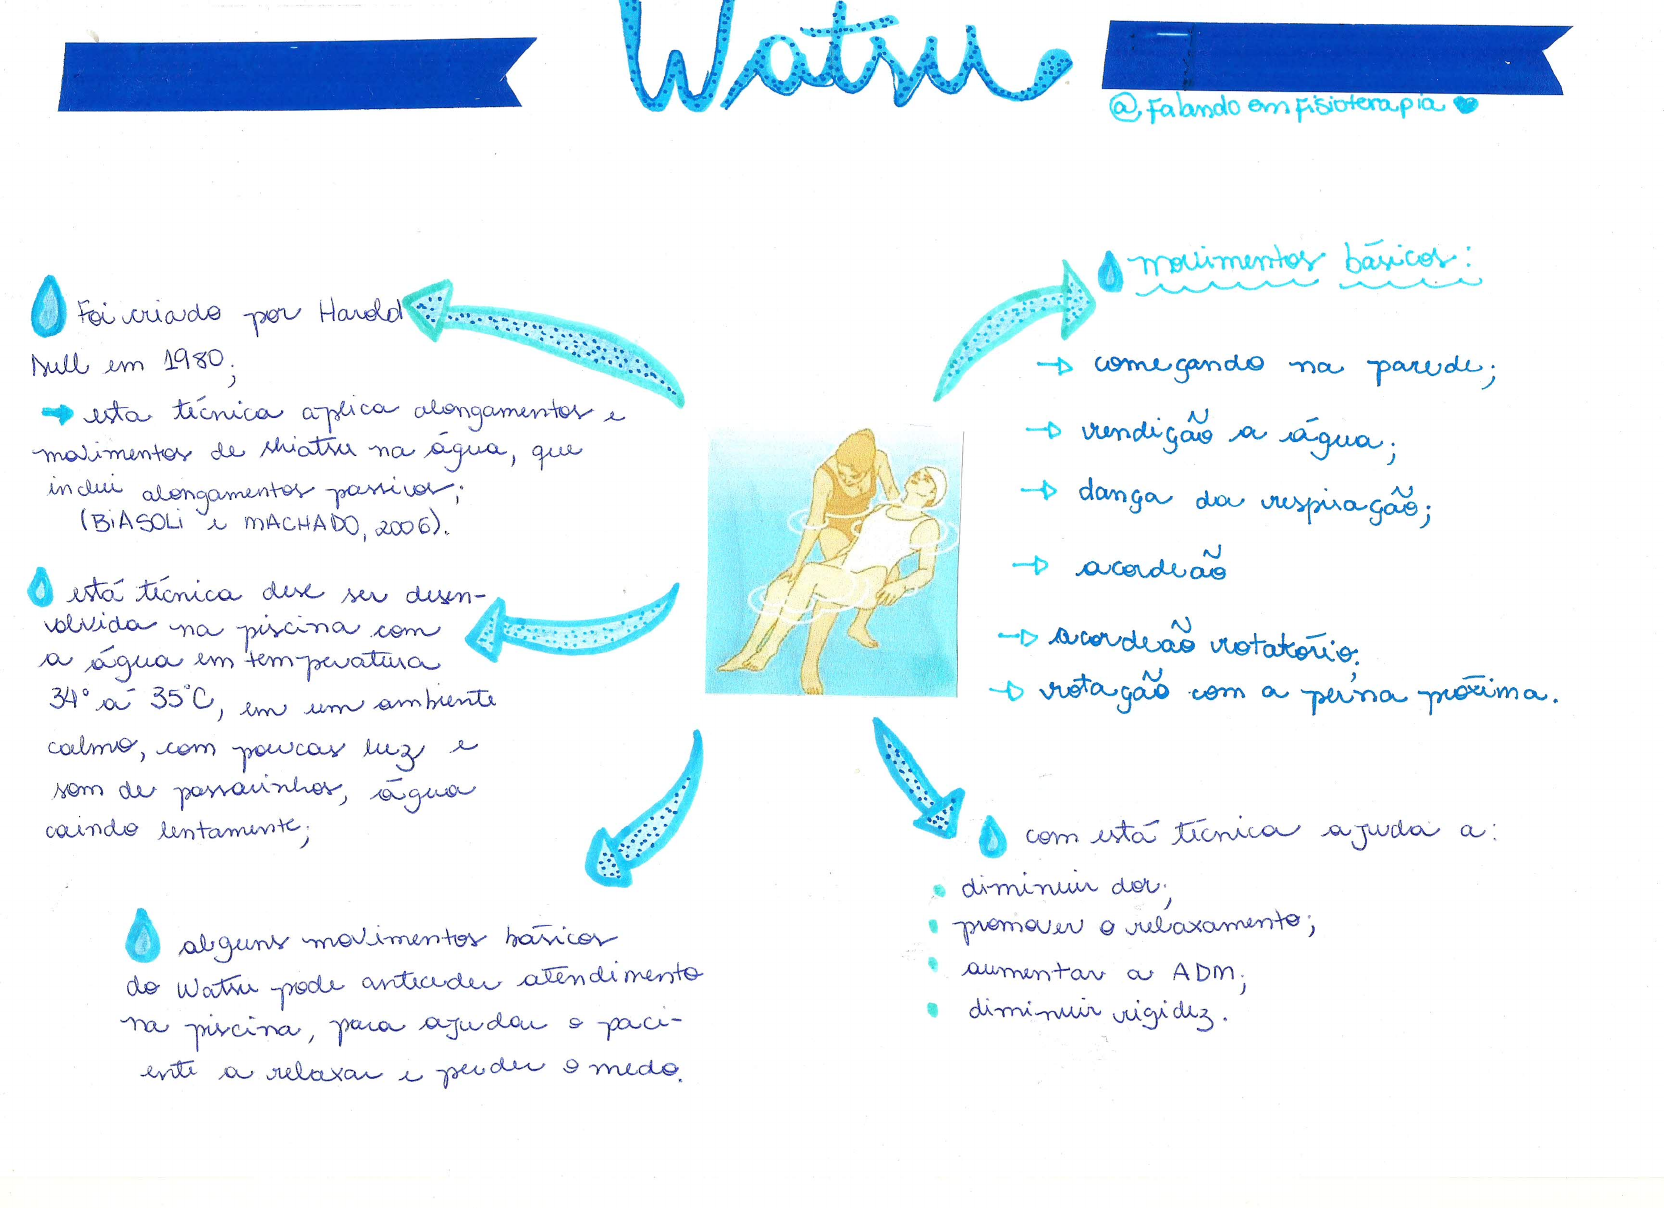 Watsu
@falandoemfisioterapia
Foi criado por Harold
Dull em 1980;
esta técnica aplica alongamentos e
movimentos de shiatsu na água, que
inclui alongamentos passivos;
(BIASOLI e MACHADO, 2006).
está técnica deve ser desen-
volvida na piscina com
a água em temperatura
34° á 35°C, em um ambiente
calmo, com poucas luz e
som de passarinhos, água
caindo lentamente;
alguns movimentos básicos
do Watsu pode anteceder atendimento
na piscina, para ajudar o paci-
ente a relaxar e perder o medo.
movimentos básicos:
começando na parede;
rendição a água;
dança da respiração;
acordeão
acordeão rotatório;
rotação com a perna próxima.
com está técnica ajuda a:
diminuir dor;
promover o relaxamento;
aumentar a ADM;
diminuir rigidez.